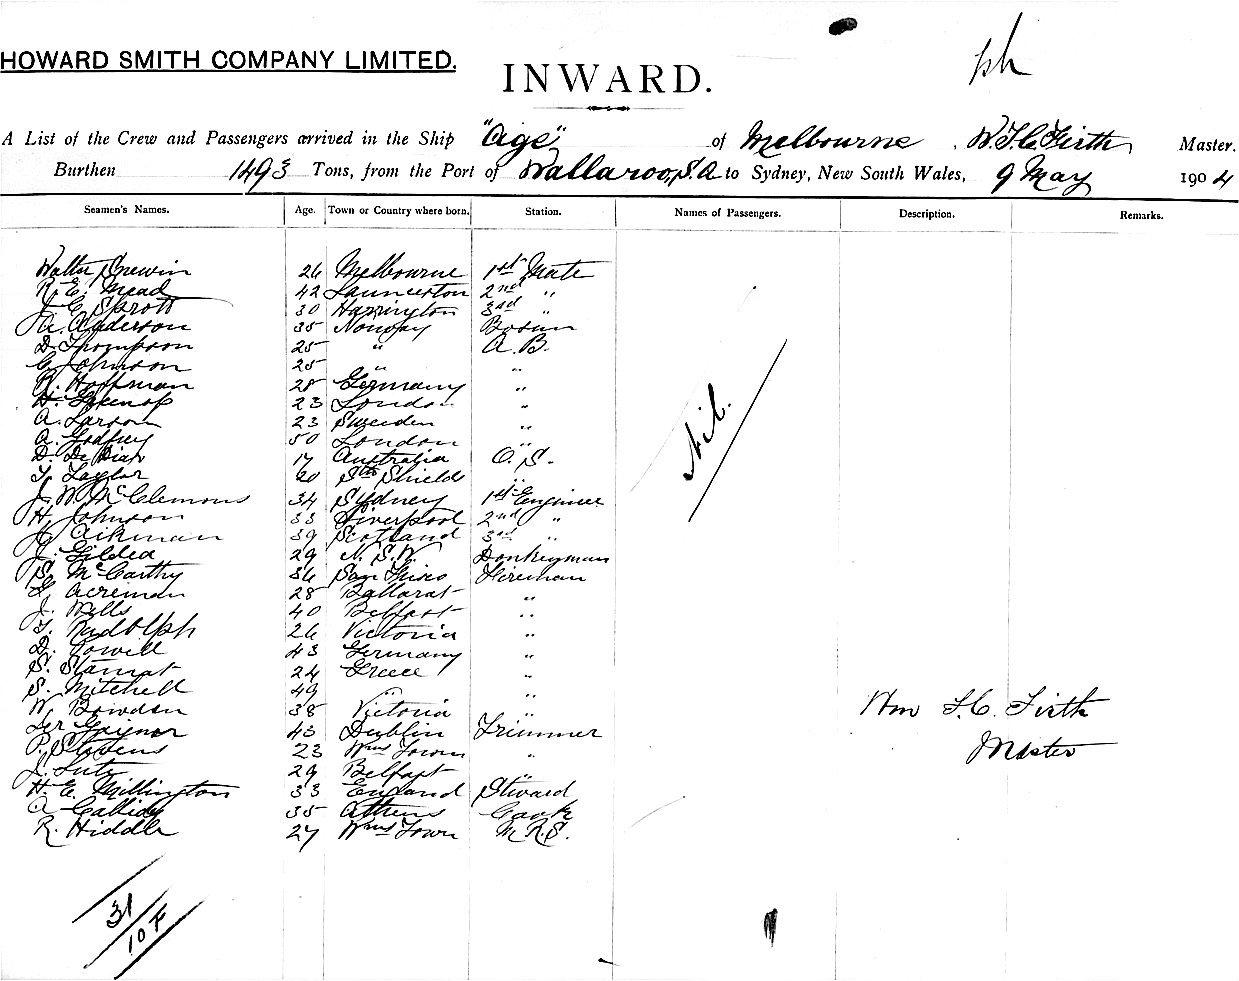 HOWARD SMITH COMPANY LIMITED.
INWARD.
A List of the Crew and Passengers arrived in the Ship "Age" of Melbourne, W. F. C. Firth, Master.
Burthen 1493 Tons, from the Port of Wallaroo, S.A to Sydney, New South Wales, 9 May 1904
Seamen's Names. Age. Town or Country where born. Station. Names of Passengers. Description. Remarks.
Walter 26 Melbourne 1st Mate
R. E. Mead 42 Launceston 2nd "
J. C. Sprott 30 Harrington 3rd "
A. Anderson 35 Norway Bosun
D. Thompson 25 " A.B.
C. Johnson 25 " "
R. Hoffman 28 Germany "
H. 23 London "
A. Larson 23 Sweden "
A. Godfrey 50 London "
D. 17 Australia O.S.
T. Taylor 20 Sth Shields "
J. W. McClemons 34 Sydney 1st Engineer
H. Johnson 33 Liverpool 2nd "
J. Aikman 39 Scotland 3rd "
J. Gildea 29 N.S.W. Donkeyman
S. McCarthy 36 San Frisco Fireman
G. Acreman 28 Ballarat "
J. Wells 40 Belfast "
T. Rudolph 26 Victoria "
D. Powell 43 Germany "
S. Stamat 24 Greece "
S. Mitchell 49 " "
W. Bowden 38 Victoria "
Gaynor 43 Dublin Trimmer
P. Stevens 23 Wms Town "
J. Lutz 29 Belfast "
H. E. Millington 33 England Steward
A. Callidy 35 Athens Cook
R. Hiddle 27 Wms Town M.R.S.
Nil.
Wm F. C. Firth
Master
31
10 F